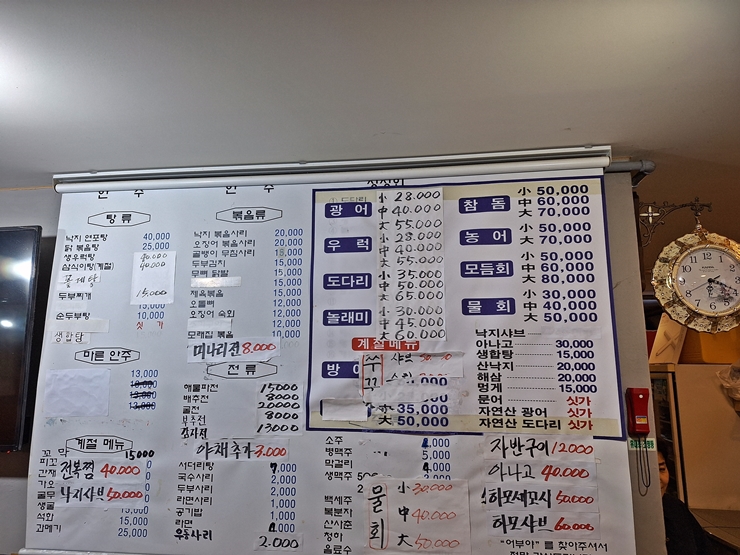 안 주
안 주
싱싱회
탕 류
낙지 연포탕 40,000
닭 볶음탕 25,000
생우럭탕 40.000
삼식이탕(계절) 40.000
꽃게탕
두부찌개 15.000
15,000
순두부탕 10,000
생합탕 싯가
마른 안주
13,000
13,000
계절 메뉴
꼬막 15,000
피꼬
간재
전복찜 40.000
가오
굴무
낙지샤브 50.000
생굴
석화 15,000
과메기 25,000
볶음류
낙지 볶음사리 20,000
오징어 볶음사리 20,000
골뱅이 무침사리
두부김치 15,000
무뼈 닭발 15,000
제육볶음 15,000
오돌뼈 12,000
오징어 숙회
모래집 볶음 10,000
미나리전 8.000
전 류
해물파전 15000
배추전 8000
굴전 20000
부추전 8000
13000
야채추가 3.000
서더리탕
국수사리 2,000
두부사리 2,000
라면사리 1,000
공기밥 1,000
라면
우동사리 2.000
광어
小 28.000
中 40.000
大 55.000
우럭
小 28.000
中
大 55.000
도다리
小 35.000
中 50.000
大 65.000
놀래미
小 30.000
中 45.000
大 60.000
계절메뉴
방어
쭈꾸
샤브
35,000
大 50,000
참돔
小 50,000
中 60,000
大 70,000
농어
小 50,000
大 70,000
모듬회
小 50,000
中 60,000
大 80,000
물 회
小 30,000
中 40,000
大 50,000
낙지샤브
아나고 30,000
생합탕 15,000
산낙지 20,000
해삼 20,000
멍게 15,000
문어 싯가
자연산 광어 싯가
자연산 도다리 싯가
소주
병맥주 5,000
막걸리 4,000
생맥주 500
백세주
복분자
산사춘
청하
음료수
물회
小 30.000
中 40.000
大 50.000
자반구이 12000
아나고 40.000
하모세꼬시 50.000
하모샤브 60.000
"어부야"를 찾아주셔서